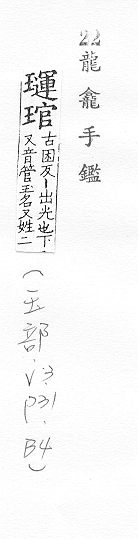 22 龍龕手鑑
璭琯
古困反丨出光也下
又音管玉名又姓二
(玉部.V3.P31.B4)